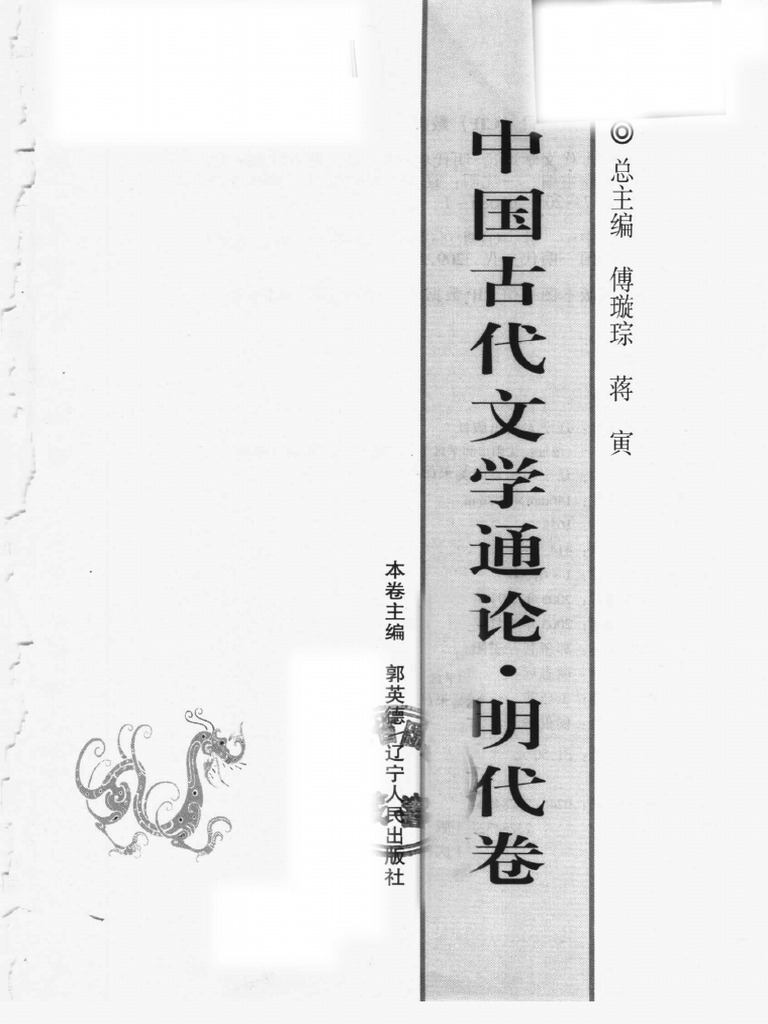 总主编 傅璇琮 蒋 寅
中国古代文学通论·明代卷
本卷主编 郭英德 辽宁人民出版社